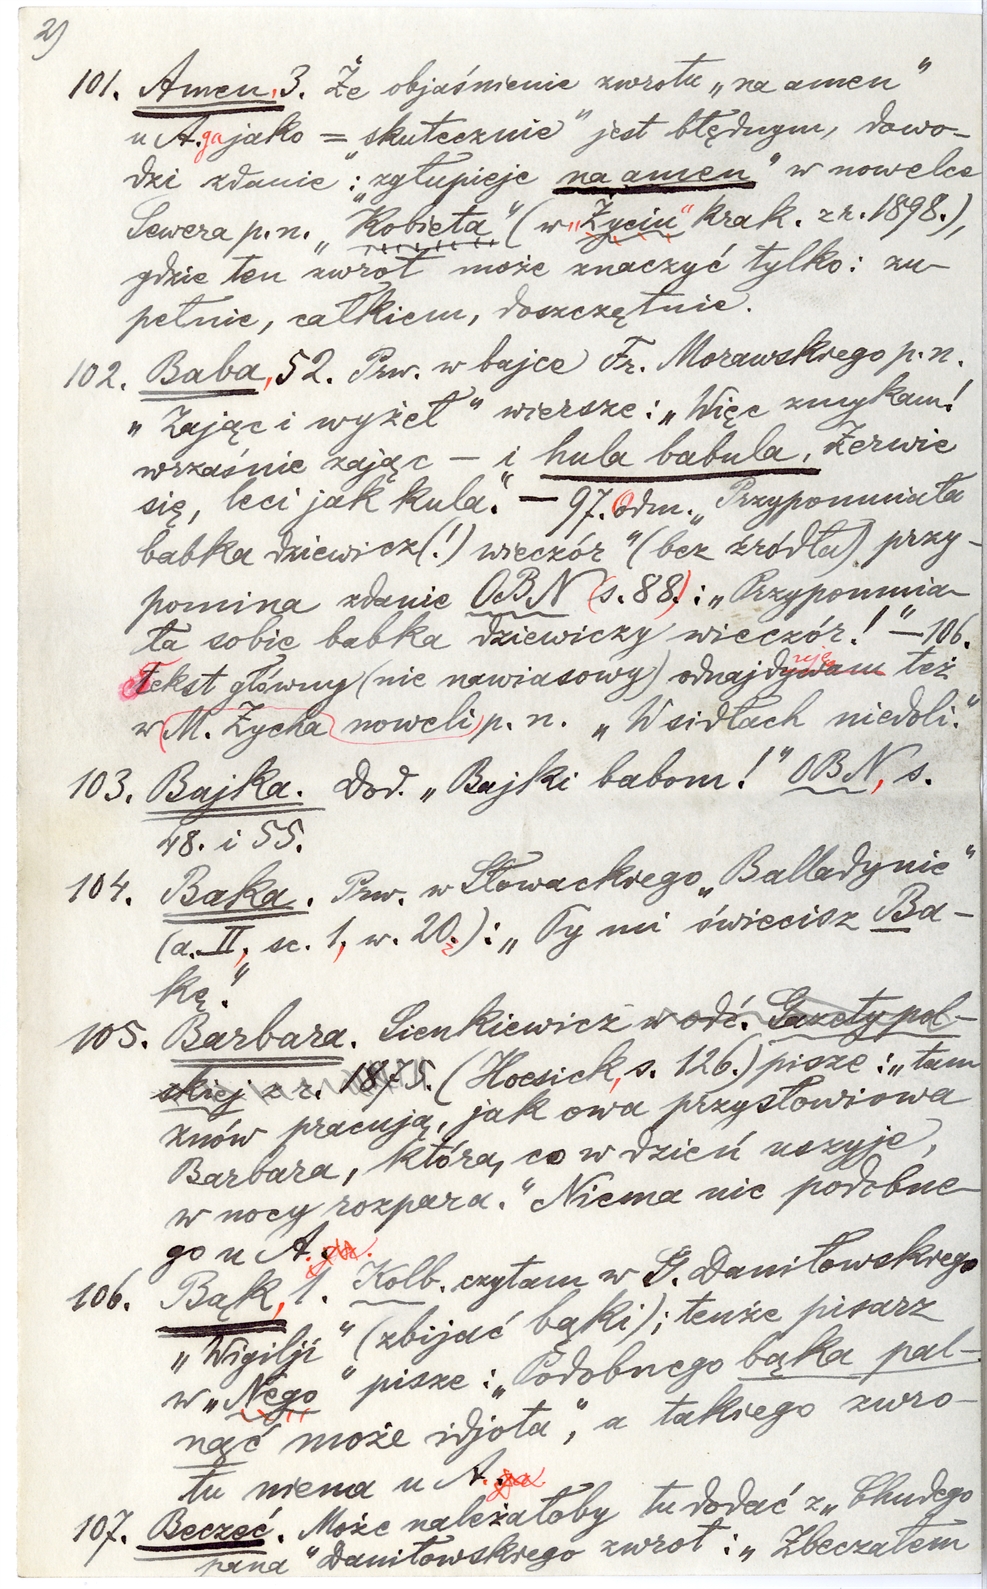 2)
101. Amen, 3. Że objaśnienie zwrotu „na amen”
u A.ga jako = skutecznie” jest błędnym, dowo-
dzi zdanie: „zgłupieje na amen” w nowelce
Sewera p.n. „Kobieta” (w „Życiu” krak. z r. 1898.),
gdzie ten zwrot może znaczyć tylko: zu-
pełnie, całkiem, doszczętnie.
102. Baba, 52. Prw. w bajce Fr. Morawskiego p.n.
„Zając i wyżeł” wiersze: „Więc zmykam!
wrzaśnie zając — i hula babula, Zerwie
się, leci jak kula.” — 97. Odm. „Przypomniała
babka dziewicz(!) wieczór” (bez źródła) przy-
pomina zdanie OBN (s. 88.): „Przypomnia-
ła sobie babka dziewiczy wieczór!” — 106.
Tekst główny (nie nawiasowy) odnajduję też
w M. Zycha noweli p. n. „W sidłach niedoli.”
103. Bajka. Dod. „Bajki babom!” OBN, s.
48. i 55.
104. Baka. Prw. w Słowackiego „Balladynie”
(a. II, sc. 1, w. 20.): „Ty mi świecisz Ba-
kę.”
105. Barbara. Sienkiewicz w odc. Gazety pol-
skiej z r. 1875. (Hoesick, s. 126.) pisze: „tam
znów pracują, jak owa przysłowiowa
Barbara, która, co w dzień uszyje,
w nocy rozpara.” Niema nic podobne-
go u A.
106. Bąk, 1. Kolb. czytam w G. Daniłowskiego
„Wigilji” (zbijać bąki); tenże pisarz
w „Nego” pisze: „Podobnego bąka pal-
nąć może idjota”, a takiego zwro-
tu niema u A.
107. Beczeć. Może należałoby tu dodać z „Chudego
pana” Daniłowskiego zwrot: „Zbeczałem